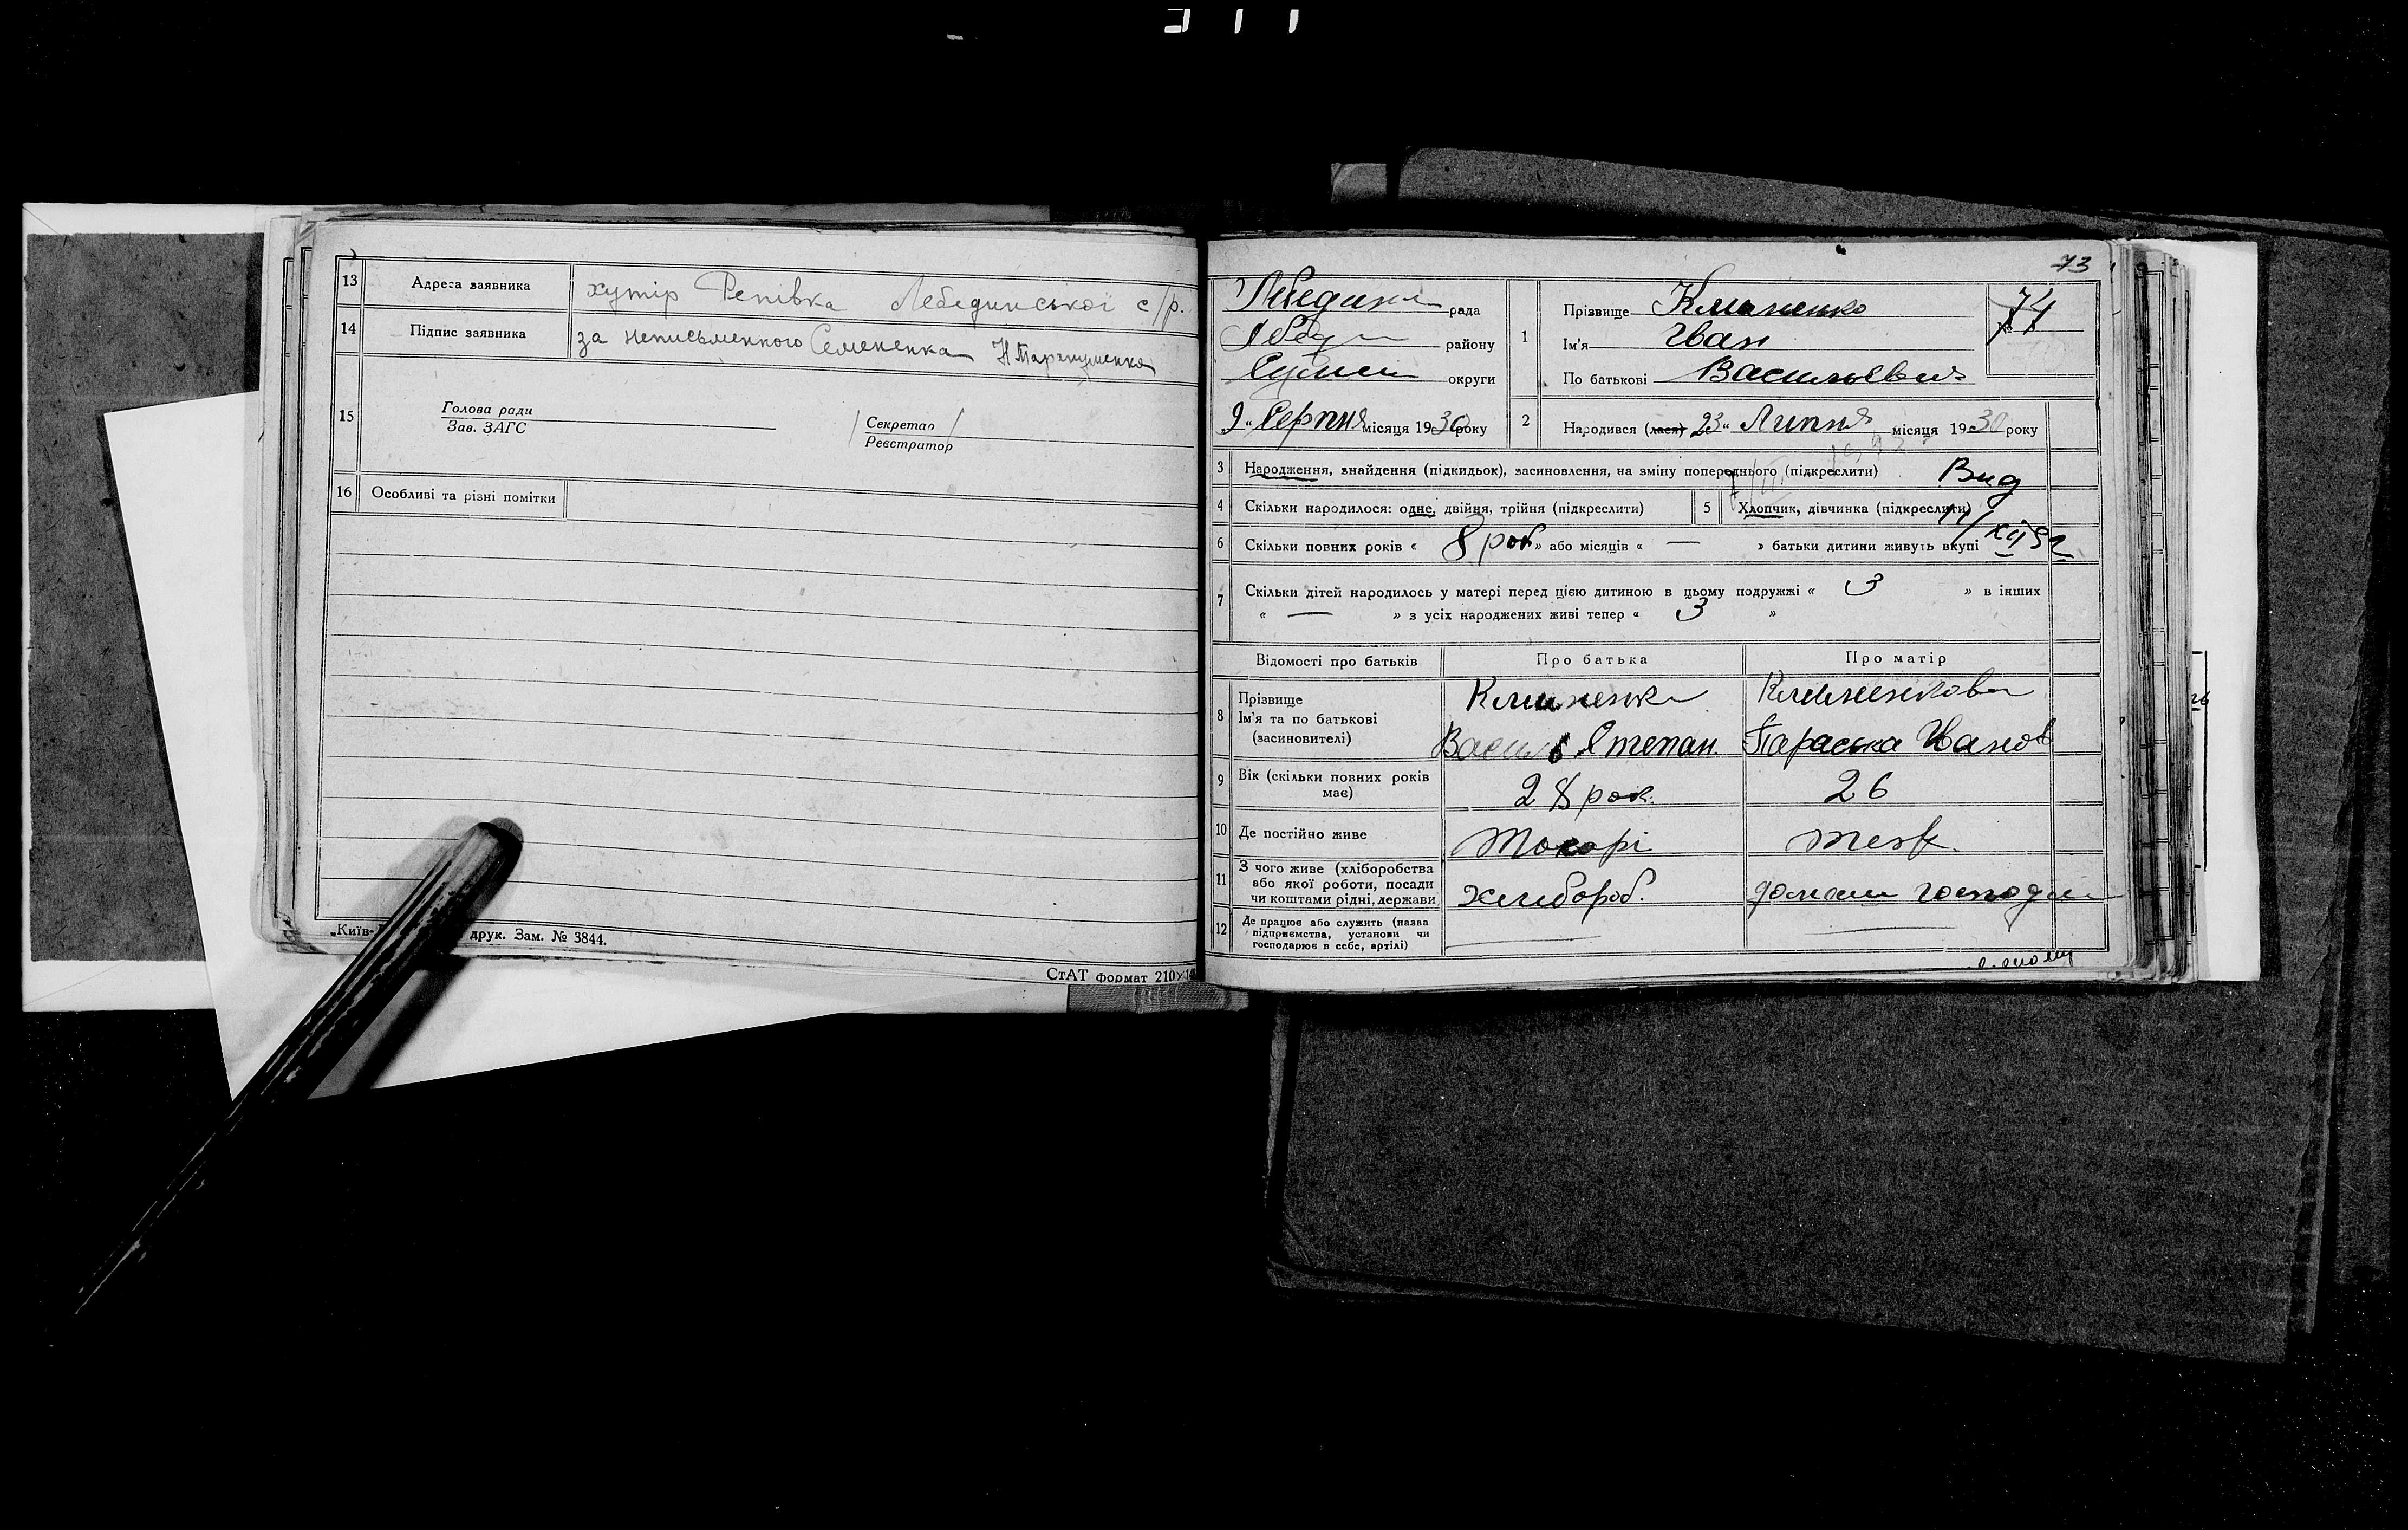 13 Адреса заявника хутір Репівка Лебединської с/р.
14 Підпис заявника за неписьменного Семененка
15 Голова ради
Зав. ЗАГС
Секретар
Реєстратор
16 Особливі та різні помітки
„Київ- друк. Зам. № 3844.
СтАТ формат 210
73
рада
району
округи
„9“ Серпня місяця 1930 року
1 Прізвище Клименко
Ім'я Іван
По батькові Васильевич
74
2 Народився (лася) „23“ Липня місяця 1930 року
3 Народження, знайдення (підкидьок), засиновлення, на зміну попереднього (підкреслити)
Вид
4 Скільки народилося: одне, двійня, трійня (підкреслити) 5 Хлопчик, дівчинка (підкреслити)
6 Скільки повних років « 8 рок » або місяців « — » батьки дитини живуть вкупі
7 Скільки дітей народилось у матері перед цією дитиною в цьому подружжі « 3 » в інших
« — » з усіх народжених живі тепер « 3 »
Відомості про батьків Про батька Про матір
8 Прізвище
Ім'я та по батькові
(засиновителі)
Клименко
Василь Степан.
Клименкова
Параська Иванов
9 Вік (скільки повних років
має)
28 рок.
26
10 Де постійно живе Токарі теж
11 З чого живе (хліборобства
або якої роботи, посади
чи коштами рідні, держави
Хлибороб.
домаш господ
12 Де працює або служить (назва
підприємства, установи чи
господарює в себе, артілі)